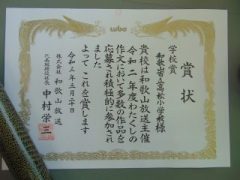 wbs
賞状
学校賞
和歌山市立高松小学校様
貴校は和歌山放送主催
令和二年度わたくしの
作文において多数の作品を
応募され積極的に参加され
ました
よってこれを賞します
令和三年三月二十日
株式会社 和歌山放送
代表取締役社長 中村栄三